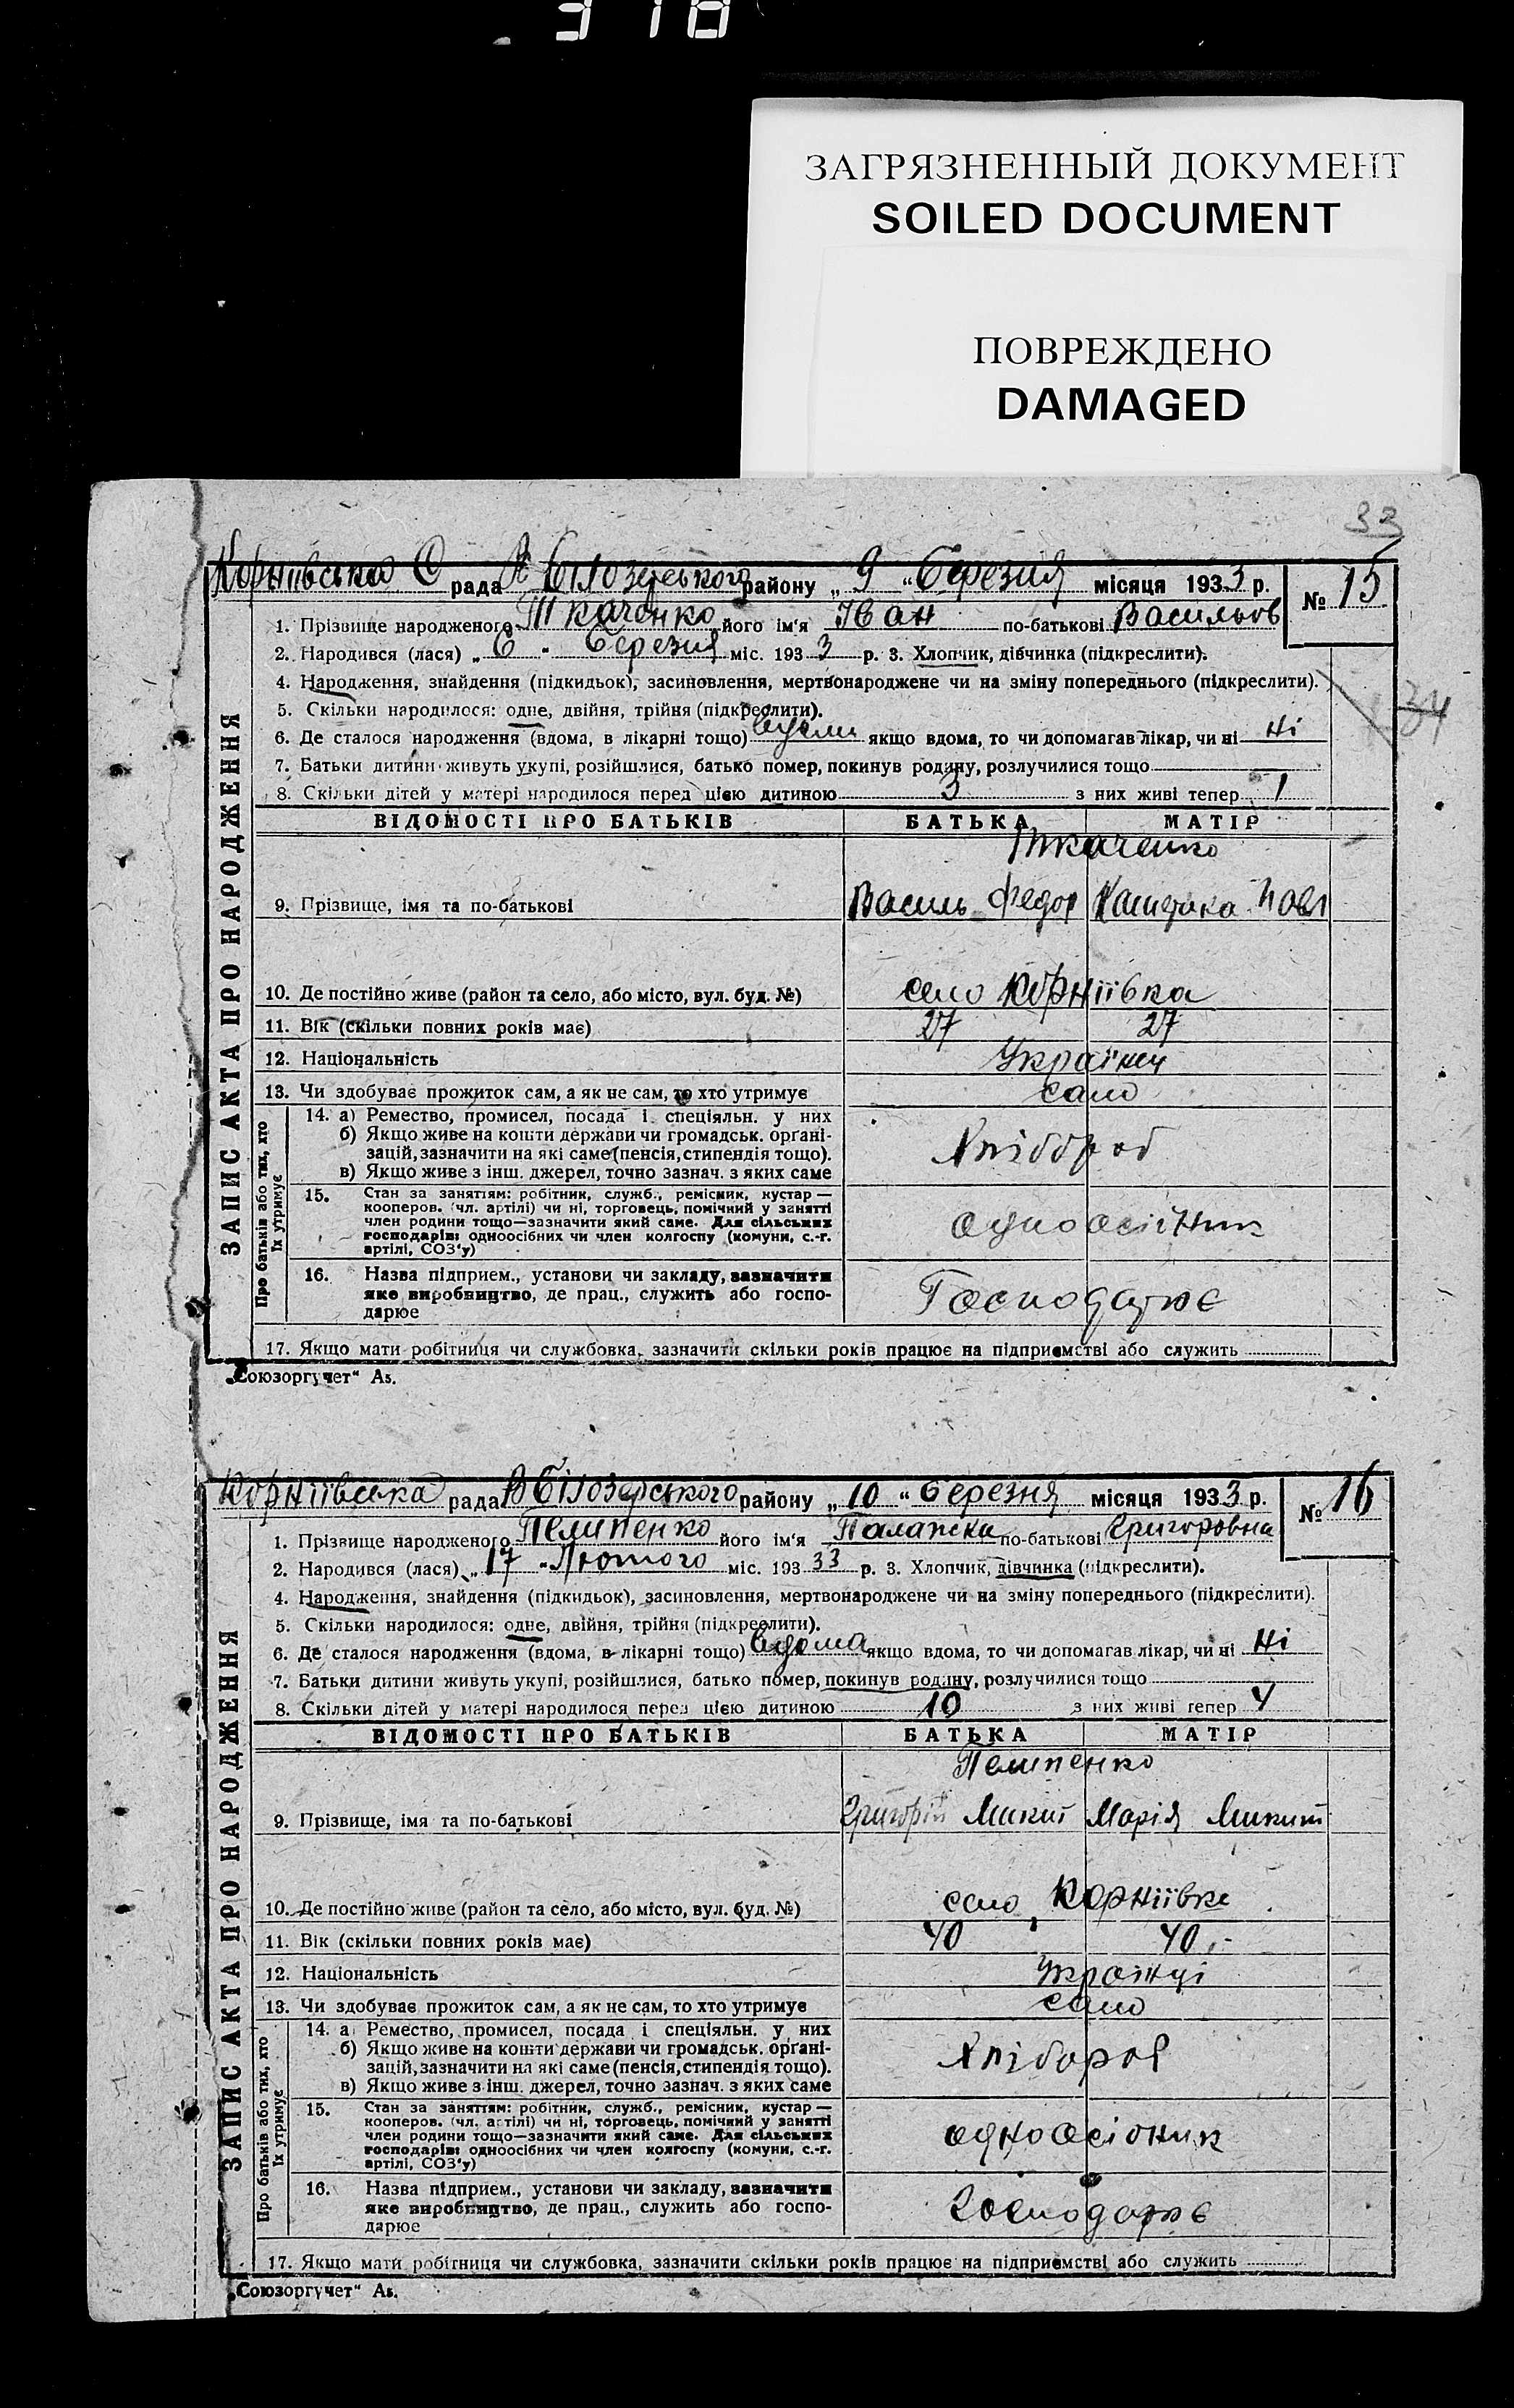 318
ЗАГРЯЗНЕННЫЙ ДОКУМЕНТ
SOILED DOCUMENT
ПОВРЕЖДЕНО
DAMAGED
33
Корніївська С рада Білозерського району „ 9 “ березня місяця 1933 р. № 15
1. Прізвище народженого Ткаченко його ім'я Іван по-батькові Васильов
2. Народився (лася) „ 6 “ березня міс. 193 3 р. 3. Хлопчик, дівчинка (підкреслити).
4. Народження, знайдення (підкидьок), засиновлення, мертвонароджене чи на зміну попереднього (підкреслити).
34
5. Скільки народилося: одне, двійня, трійня (підкреслити).
6. Де сталося народження (вдома, в лікарні тощо) якщо вдома, то чи допомагав лікар, чи ні ні
7. Батьки дитини живуть укупі, розійшлися, батько помер, покинув родину, розлучилися тощо
8. Скільки дітей у матері народилося перед цією дитиною 3 з них живі тепер 1
ЗАПИС АКТА ПРО НАРОДЖЕННЯ
ВІДОМОСТІ ПРО БАТЬКІВ БАТЬКА МАТІР
Ткаченко
9. Прізвище, імя та по-батькові Василь Федор Павл
10. Де постійно живе (район та село, або місто, вул. буд. №) село Корніївка
11. Вік (скільки повних років має) 27 27
12. Національність Українці
13. Чи здобуває прожиток сам, а як не сам, то хто утримує само
Про батьків або тих, хто
їх утримує
14. а) Ремество, промисел, посада і спеціяльн. у них
б) Якщо живе на кошти держави чи громадськ. органі-
зацій, зазначити на які саме (пенсія, стипендія тощо).
в) Якщо живе з інш. джерел, точно зазнач. з яких саме
Хлібороб
15. Стан за заняттям: робітник, служб., ремісник, кустар —
кооперов. (чл. артілі) чи ні, торговець, помічний у занятті
член родини тощо—зазначити який саме. Для сільських
господарів: одноосібних чи член колгоспу (комуни, с.-г.
артілі, СОЗ'у)
одноосібник
16. Назва підприєм., установи чи закладу, зазначити
яке виробництво, де прац., служить або госпо-
дарює
Господарює
17. Якщо мати робітниця чи службовка, зазначити скільки років працює на підприємстві або служить
„Союзоргучет“ А5.
Корніївська рада В Білозерського району „ 10 “ березня місяця 1933 р. № 16
1. Прізвище народженого Пелипенко його ім'я Палажка по-батькові Григоровна
2. Народився (лася) „ 17 “ Лютого міс. 193 33 р. 3. Хлопчик, дівчинка (підкреслити).
4. Народження, знайдення (підкидьок), засиновлення, мертвонароджене чи на зміну попереднього (підкреслити).
5. Скільки народилося: одне, двійня, трійня (підкреслити).
6. Де сталося народження (вдома, в лікарні тощо) вдома якщо вдома, то чи допомагав лікар, чи ні ні
7. Батьки дитини живуть укупі, розійшлися, батько помер, покинув родину, розлучилися тощо
8. Скільки дітей у матері народилося перед цією дитиною 10 з них живі тепер 4
ЗАПИС АКТА ПРО НАРОДЖЕННЯ
ВІДОМОСТІ ПРО БАТЬКІВ БАТЬКА МАТІР
Пелипенко
9. Прізвище, імя та по-батькові Григорій Микит Марія Микит
10. Де постійно живе (район та село, або місто, вул. буд. №) село Корніївка
11. Вік (скільки повних років має) 40 40
12. Національність Українці
13. Чи здобуває прожиток сам, а як не сам, то хто утримує само
Про батьків або тих, хто
їх утримує
14. а) Ремество, промисел, посада і спеціяльн. у них
б) Якщо живе на кошти держави чи громадськ. органі-
зацій, зазначити на які саме (пенсія, стипендія тощо).
в) Якщо живе з інш. джерел, точно зазнач. з яких саме
Хлібороб
15. Стан за заняттям: робітник, служб., ремісник, кустар —
кооперов. (чл. артілі) чи ні, торговець, помічний у занятті
член родини тощо—зазначити який саме. Для сільських
господарів: одноосібних чи член колгоспу (комуни, с.-г.
артілі, СОЗ'у)
одноосібник
16. Назва підприєм., установи чи закладу, зазначити
яке виробництво, де прац., служить або госпо-
дарює
Господарює
17. Якщо мати робітниця чи службовка, зазначити скільки років працює на підприємстві або служить
„Союзоргучет“ А5.